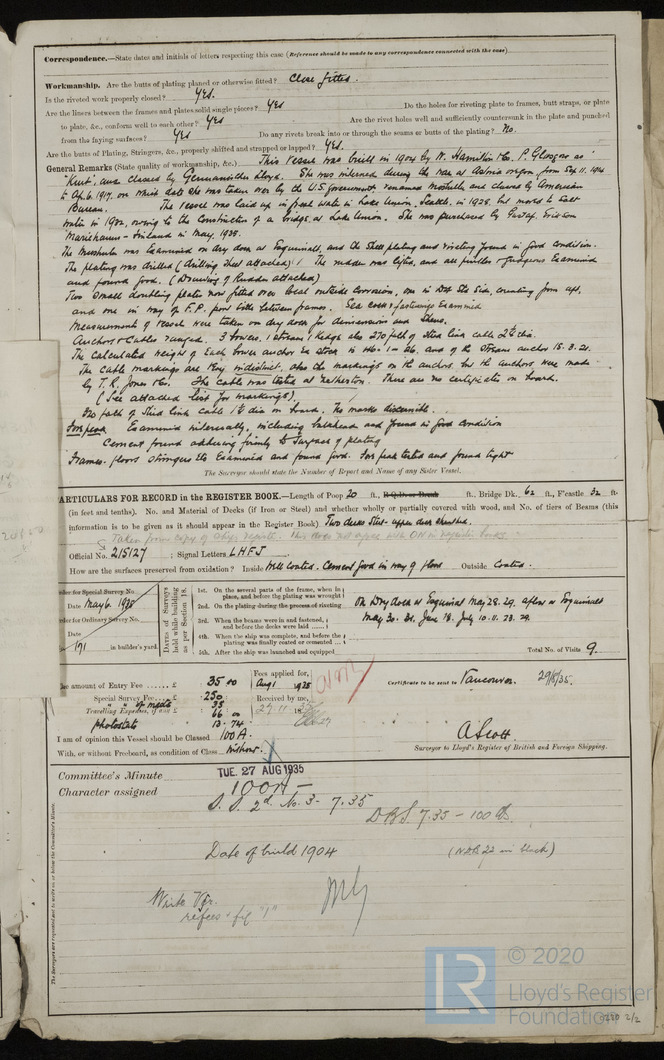 Correspondence.—State dates and initials of letters respecting this case (Reference should be made to any correspondence connected with the case)
Workmanship. Are the butts of plating planed or otherwise fitted? Close fitted.
Is the riveted work properly closed? Yes.
Are the liners between the frames and plates solid single pieces? Yes Do the holes for riveting plate to frames, butt straps, or plate
to plate, &c., conform well to each other? Yes Are the rivet holes well and sufficiently countersunk in the plate and punched
from the faying surfaces? Yes Do any rivets break into or through the seams or butts of the plating? No.
Are the butts of Plating, Stringers, &c., properly shifted and strapped or lapped? Yes.
General Remarks (State quality of workmanship, &c.) This Vessel was built in 1904 by W. Hamilton & Co. P. Glasgow as
"Kurt", and classed by Germanischer Lloyds. She was interned during the war at Astoria Oregon from Sep 11. 1914
to Ap. 6. 1917, on which date she was taken over by the U.S. Government, renamed Moshulu and classed by American
Bureau. The vessel was laid up in fresh water in Lake Union, Seattle, in 1928, but moved to salt
water in 1932, owing to the construction of a bridge at Lake Union. She was purchased by Gustaf Erikson
Mariehamn - Finland in May. 1935.
The Moshulu was examined on dry dock at Esquimalt, and the Shell plating and riveting found in good condition.
The plating was drilled (drilling sheet attached). The rudder was lifted, and all pintles & gudgeons examined
and found good. (Drawing of Rudder attached)
Two small doubling plates now fitted over local outside corrosion, one in Stke Stb Side, counting from aft,
and one in way of F.P. port side between frames. Sea cocks & fastenings examined
Measurements of vessel were taken on dry dock for dimensions and Sheer.
Anchors & Cables ranged. 3 bowers. 1 stream 1 kedge also 270 fath of stud link cable 2 dia.
The calculated weight of each bower anchor ex stock is and of the stream anchor 15. 3. 21.
The cable markings are very indistinct, also the markings on the anchors, but the anchors were made
by T. R. Jones & Co. The cable was tested at Netherton. There are no certificates on board.
(See attached list for markings)
fath of Stud link cable dia on board. No marks discernible.
Forepeak Examined internally, including bulkhead and found in good condition
Cement found adhering firmly to surfaces of plating
Frames. floors stringers etc Examined and found good. Fore peak tested and found tight
The Surveyor should state the Number of Report and Name of any Sister Vessel.
ARTICULARS FOR RECORD in the REGISTER BOOK.—Length of Poop 20 ft., R.Q.D. or Break ft., Bridge Dk., 62 ft., F'castle 32 ft.
(in feet and tenths). No. and Material of Decks (if Iron or Steel) and whether wholly or partially covered with wood, and No. of tiers of Beams (this
information is to be given as it should appear in the Register Book) Two decks Steel - upper deck sheathed.
Taken from copy of Abp's reports. This does not agree with ON in register books.
Official No. 215127 ; Signal Letters LHFJ
How are the surfaces preserved from oxidation? Inside Well Coated. Cement good in way of floors Outside Coated.
der for Special Survey No.
Date May 6. 1935
der for Ordinary Survey No.
Date
171 in builder's yard.
Dates of Surveys held while building as per Section 18.
1st. On the several parts of the frame, when in place, and before the plating was wrought
2nd. On the plating during the process of riveting
3rd. When the beams were in and fastened, and before the decks were laid
4th. When the ship was complete, and before the plating was finally coated or cemented
5th. After the ship was launched and equipped
On Dry dock at Esquimalt May 28. 29. afloat at Esquimalt
May 30. 31. June 18. July 10. 11. 23. 29.
Total No. of Visits 9.
he amount of Entry Fee £ 35 00
Special Survey Fee £ 250
35
Travelling Expenses, if any £ 66
photostats 13. 74
Fees applied for, Aug 1 1935
Received by me,
27. 11. 35
Certificate to be sent to Vancouver. 29/8/35.
I am of opinion this Vessel should be Classed 100 A.
With, or without Freeboard, as condition of Class without.
A Scott
Surveyor to Lloyd's Register of British and Foreign Shipping.
Committee's Minute TUE. 27 AUG 1935
Character assigned 100A-
S. S. 2d. No. 3 - 7.35
DBS 7.35 - 100 lbs.
Date of build 1904
(NDB 22 in black)
Write Vr.
refees "fil "1"
The Surveyors are requested not to write on or below the Committee's Minute.
© 2020
LR
Lloyd's Register
Foundation
2/2